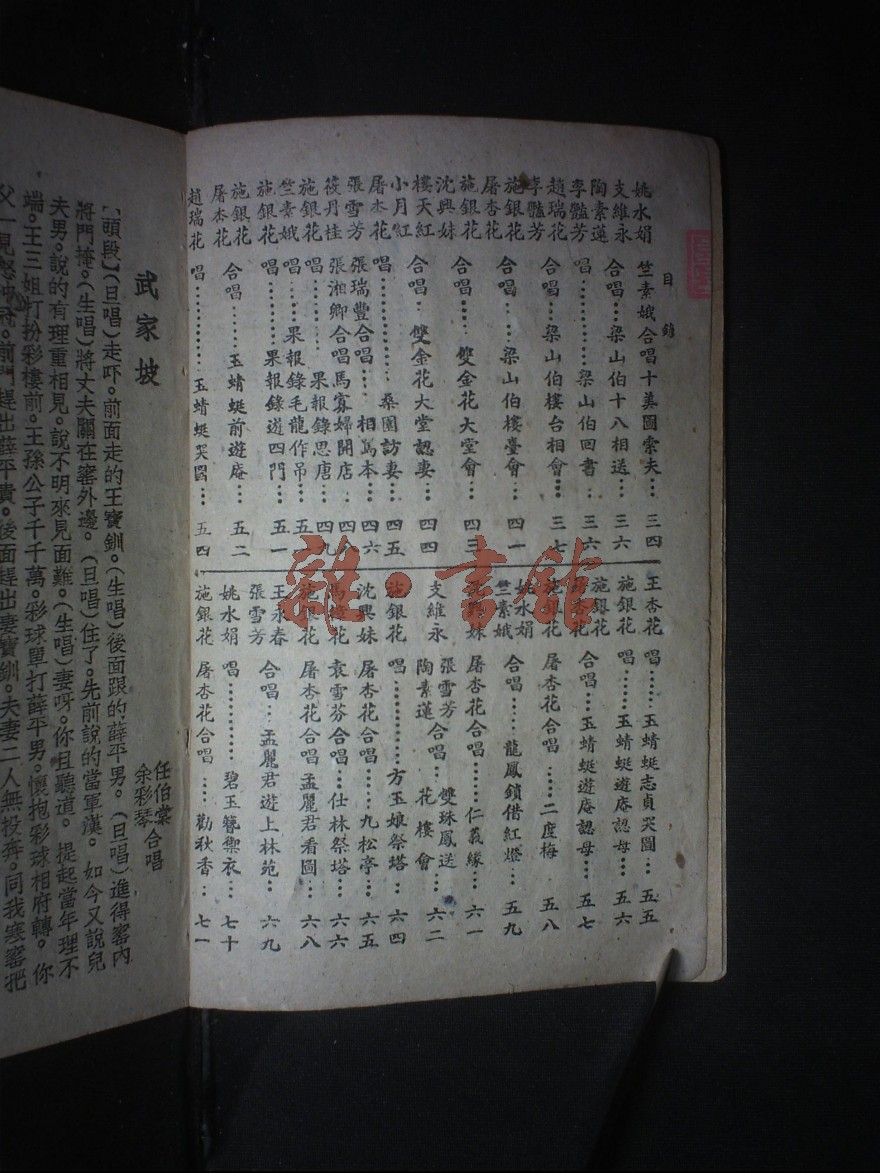 目錄
姚水娟 竺素娥合唱十美圖索夫…三四
支維永 陶素蓮 合唱…梁山伯十八相送…三六
李豔芳 唱……梁山伯回書…三六
趙瑞花 李豔芳 合唱…梁山伯樓台相會…三七
施銀花 屠杏花 合唱…梁山伯樓臺會…四一
施銀花 沈興妹 合唱…雙金花大堂會…四三
樓天紅 小月紅 合唱…雙金花大堂認妻…四四
屠杏花 唱………桑園訪妻…四五
張雪芳 張瑞豐合唱…相罵本…四六
筱丹桂 張湘卿合唱馬寡婦開店…四八
施銀花 唱………果報錄思唐…四九
竺素娥 唱…果報錄毛龍作吊…五一
施銀花 唱……果報錄逃四門…五一
施銀花 屠杏花 合唱…玉蜻蜓前遊庵…五二
趙瑞花 唱…………玉蜻蜓哭圖…五四
王杏花 唱……玉蜻蜓志貞哭圖…五五
施銀花 唱……玉蜻蜓遊庵認母…五六
施銀花 屠杏花 合唱…玉蜻蜓遊庵認母…五七
施銀花 屠杏花合唱……二度梅…五八
姚水娟 竺素娥 合唱……龍鳳鎖借紅燈…五九
沈興妹 屠杏花合唱……仁義緣…六一
支維永 張雪芳 陶素蓮 合唱…雙珠鳳送花樓會…六二
施銀花 唱…………方玉娘祭塔…六四
沈興妹 屠杏花合唱……九松亭…六五
馬樟花 袁雪芬合唱…仕林祭塔…六六
施銀花 屠杏花合唱孟麗君看圖…六八
王永春 張雪芳 合唱…孟麗君遊上林苑…六九
姚水娟 唱…………碧玉簪禦衣…七十
施銀花 屠杏花合唱…勸秋香…七一
武家坡
任伯棠 余彩琴 合唱
【頭段】(旦唱)走吓。前面走的王寶釧。(生唱)後面跟的薛平男。(旦唱)進得窰內
將門掩。(生唱)將丈夫關在窰外邊。(旦唱)住了。先前說的當軍漢。如今又說兒
夫男。說的有理重相見。說不明來見面難。(生唱)妻呀。你且聽道。提起當年理不
端。王三姐打扮彩樓前。王孫公子千千萬。彩球單打薛平男。懷抱彩球相府轉。你
父一見怒冲冠。前門趕出薛平貴。後面趕出妻寶釧。夫妻二人無投奔。同我寒窰把
雜·書館